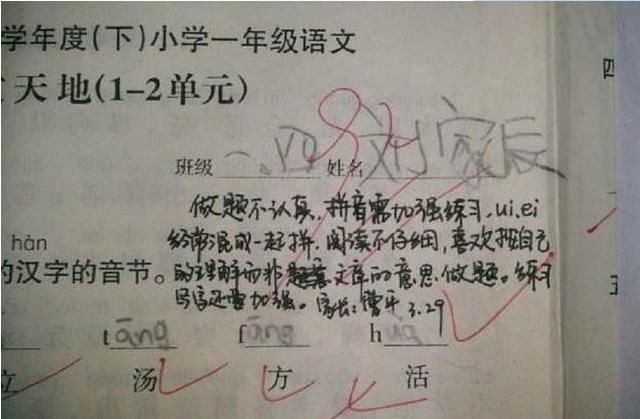 学年度(下)小学一年级语文
天地(1-2单元)
四
班级 一.四 姓名 刘家辰
做题不认真，拼音需加强练习，ui.ei
经常混成一起拼，阅读不仔细，喜欢按自己
hàn
的汉字的音节。
的理解而非文章的意思做题。练习
写字还需加强。家长：曹平 3.29
五
tāng fāng h
立 汤 方 活